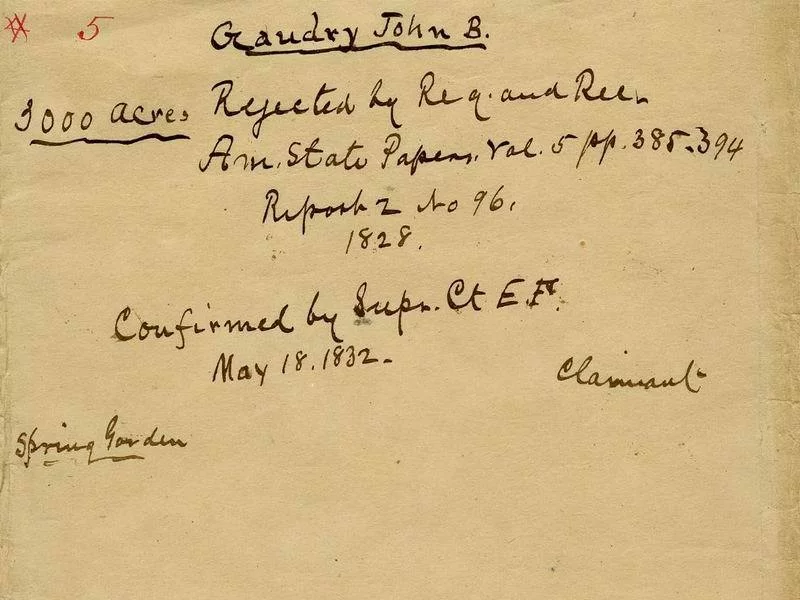 ☆ 5
Gaudry John B.
3000 acres Rejected by Reg. and Rec.
Am. State Papers. Vol. 5 pp. 385-394
Report 2 No 96.
1828.
Confirmed by Supr. Ct E. Fa.
May 18. 1832-
Claimant
Spring Garden